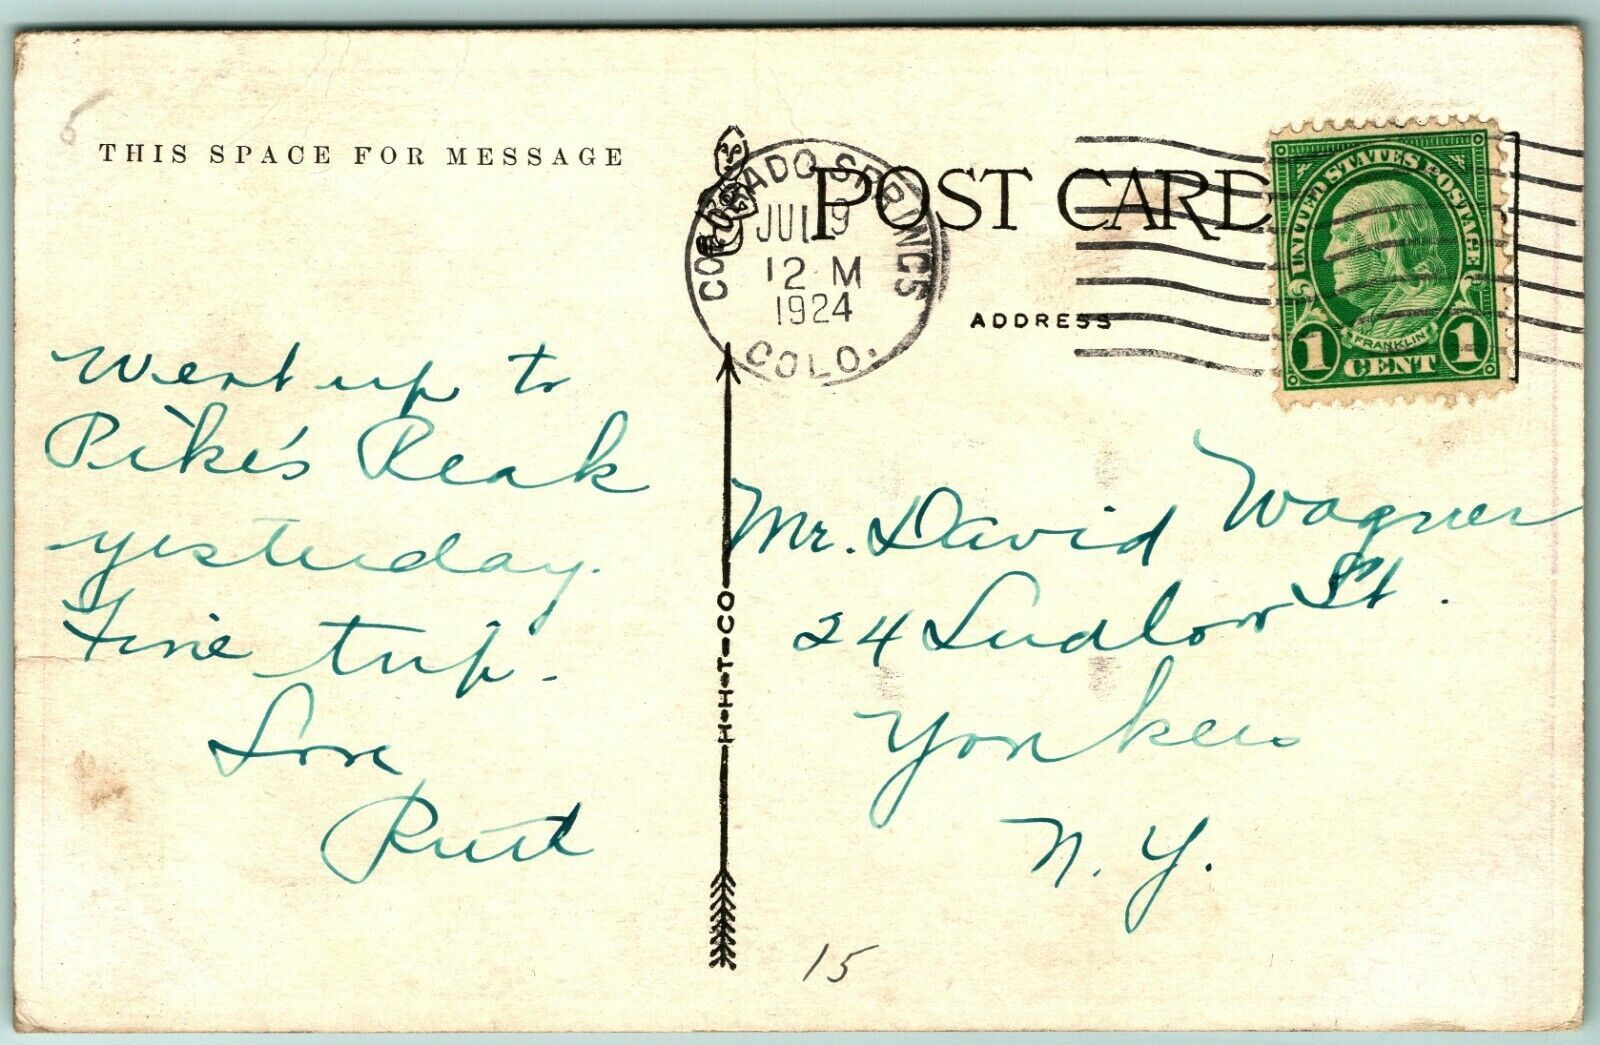 6
THIS SPACE FOR MESSAGE
COLORADO SPRINGS
JUL 9
12 M
1924
COLO.
POST CARD
ADDRESS
UNITED STATES POSTAGE
FRANKLIN
1 CENT 1
Went up to
Pike's Peak
yesterday.
Fine trip.
Love
Ruth
H-H-T-CO
Mr. David Wagner
24 Ludlow St.
Yonkers
N. Y.
15